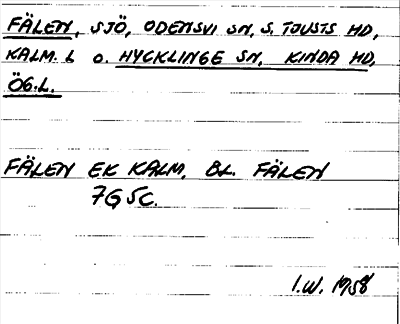 FÄLEN, SJÖ, ODENSVI SN, S. TJUSTS HD,
KALM. L O. HYCKLINGE SN, KINDA HD,
ÖG.L.
FÄLEN EK KALM, BL. FÄLEN
7G5C.
I.W. 1958